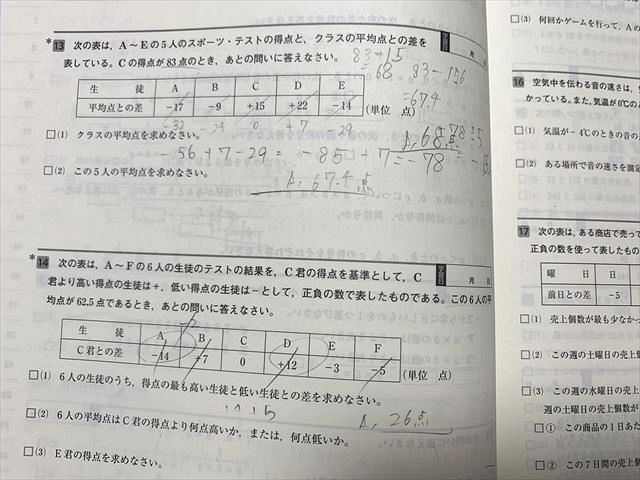 * 13 次の表は，A～Eの5人のスポーツ・テストの得点と，クラスの平均点との差を
表している。Cの得点が83点のとき，あとの問いに答えなさい。
学習日 月 日
83+15
=68
83-15.6
=67.4
生 徒 A B C D E
平均点との差 -17 -9 +15 +22 -14
(単位 点)
-32 -24 0 +7 -29
(1) クラスの平均点を求めなさい。
A, 68点
78÷5
-56+7-29=-85+7=-78
(2) この5人の平均点を求めなさい。
A, 67.4点
* 14 次の表は，A～Fの6人の生徒のテストの結果を，C君の得点を基準として，C
君より高い得点は+，低い得点は-として，正負の数で表したものである。この6人の平
均点が62.5点であるとき，あとの問いに答えなさい。
学習日 月 日
生 徒 A B C D E F
C君との差 -14 +7 0 +12 -3 -5
(単位 点)
(1) 6人の生徒のうち，得点の最も高い生徒と低い生徒との差を求めなさい。
A, 26点
(2) 6人の平均点はC君の得点より何点高いか，または，何点低いか。
(3) E君の得点を求めなさい。
(3) 何回かゲームを行って，Aの
16 空気中を伝わる音の速さは，
かっている。また，気温が0℃の
(1) 気温が-4℃のときの音の
(2) ある場所で音の速さを測
17 次の表は，ある商店で売って
正負の数を使って表したもの
曜 日 日
前日との差 -5
(1) 売上個数が最も少なかっ
(2) この週の土曜日の売上個
(3) この週の水曜日の売上
週の土曜日の売上個数
① この商品の1日あた
② この7日間の売上個